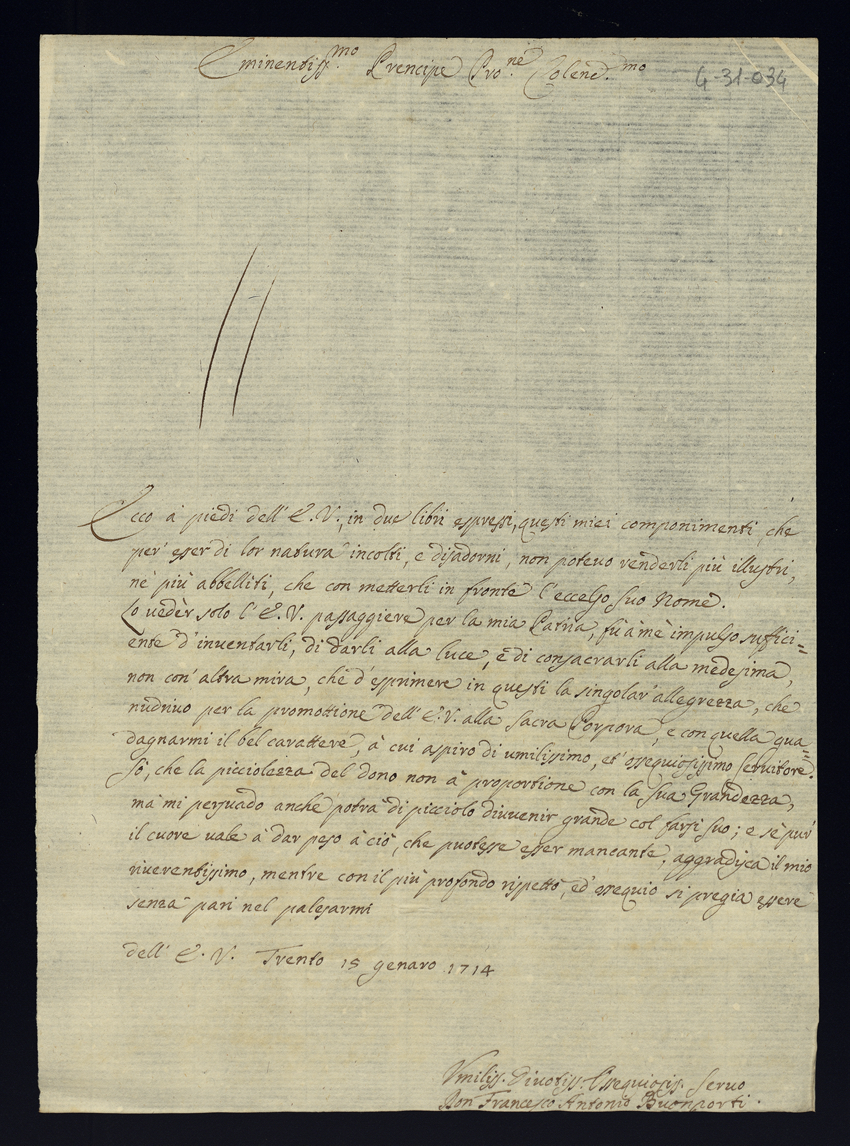 Eminentiss.mo Prencipe Pro.ne Colend.mo
4-31-034
Ecco à piedi dell' E.V., in due libri espressi, questi miei componimenti, che
per esser di lor natura incolti, e disadorni, non potevo renderli più illustri,
nè più abbelliti, che con metterli in fronte l'eccelso suo Nome.
Lo vedèr solo l'E.V. passaggiere per la mia Patria, fù à mè impulso suffici=
ente d'inventarli, di darli alla luce, e di consacrarli alla medesima,
non con' altra mira, che d'esprimere in questi la singolar' allegrezza, che
nudrivo per la promottione dell' E.V. alla Sacra Porpora, e con quella gua=
dagnarmi il bel carattere, à cui aspiro di umilissimo, et' essequiosissimo servitore.
Sò, che la picciolezza del dono non à proportione con la sua Grandezza,
mà mi persuado anche potrà di picciolo divvenir grande col farsi suo; e se pur'
il cuore vale à dar peso à ciò, che puotesse esser mancante, aggradisca il mio
riverentissimo, mentre con il più profondo rispetto, ed' essequio si pregia essere
senza pari nel palesarmi
dell' E.V. Trento 15 genaro 1714
Vmiliss. Divotiss. Essequiosis. Servo
Don Francesco Antonio Buonporti.